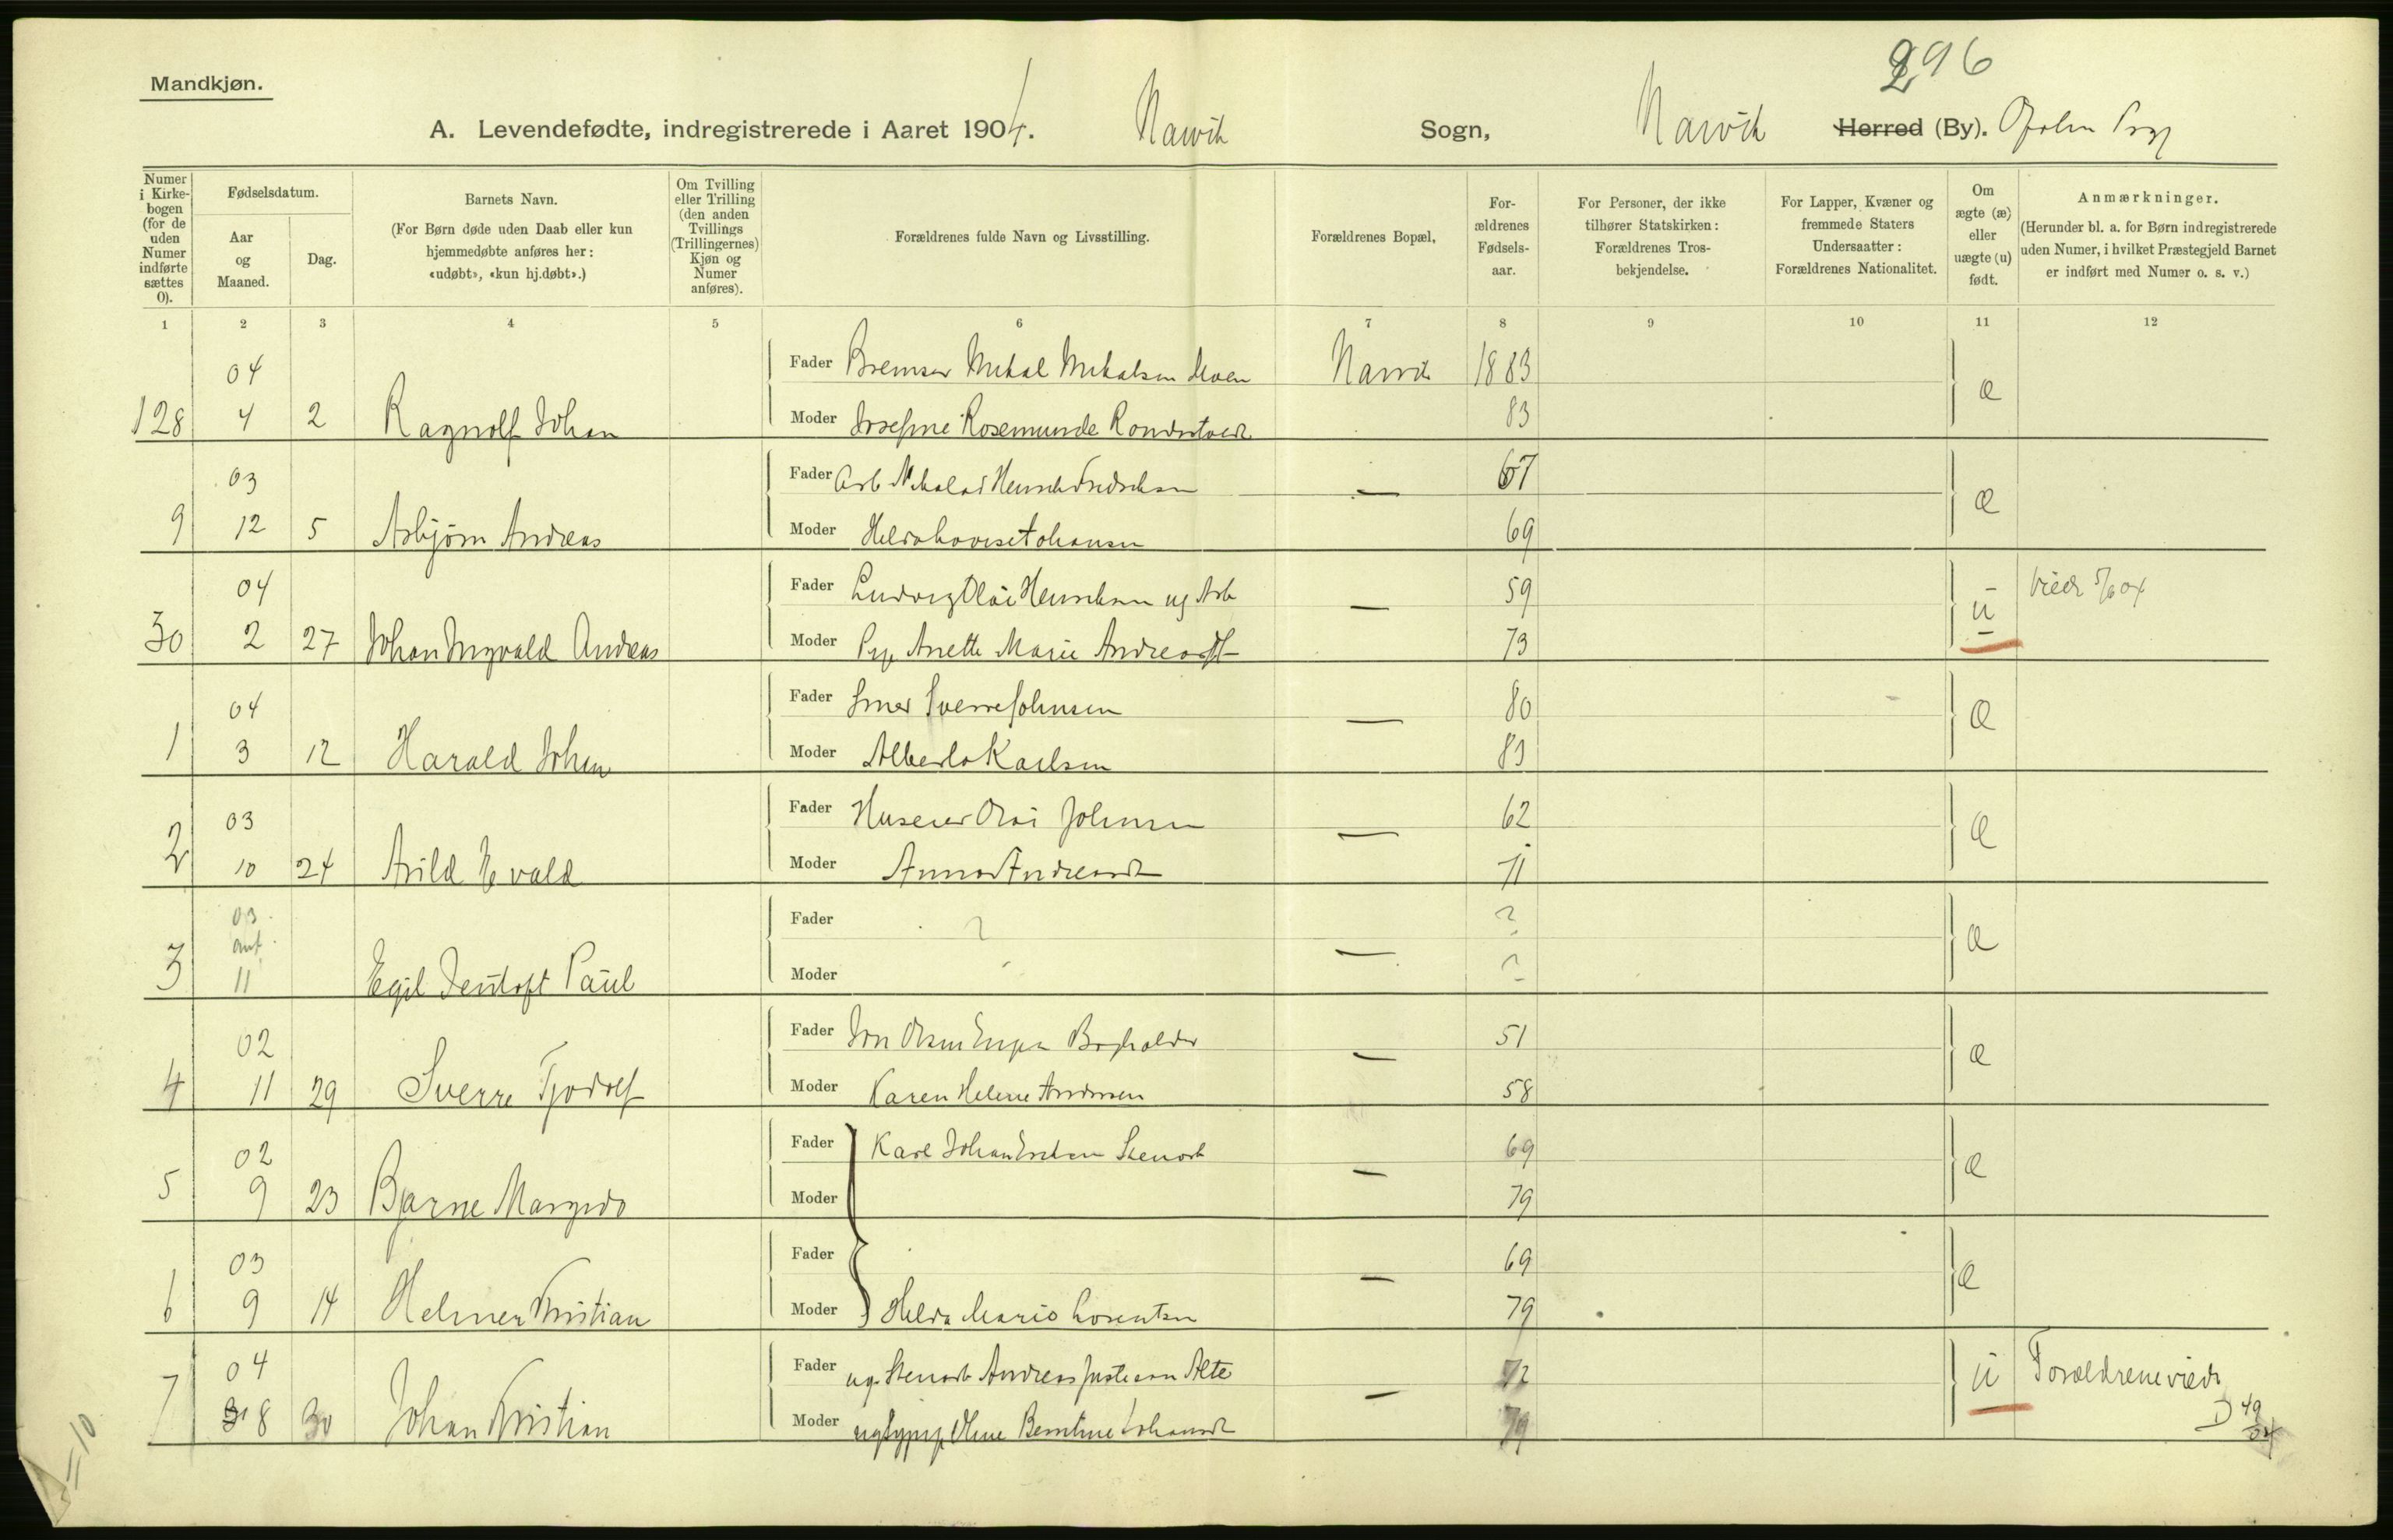 296
Mandkjøn.
A. Levendefødte, indregistrerede i Aaret 1904. Narvik Sogn, Narvik Herred (By). Ofoten Prgj
Numer i Kirkebogen (for de uden Numer indførte sættes 0).
Fødselsdatum.
Aar og Maaned.
Dag.
Barnets Navn.
(For Børn døde uden Daab eller kun hjemmedøbte anføres her: «udøbt», «kun hj.døbt».)
Om Tvilling eller Trilling (den anden Tvillings (Trillingernes) Kjøn og Numer anføres).
Forældrenes fulde Navn og Livsstilling.
Forældrenes Bopæl,
Forældrenes Fødselsaar.
For Personer, der ikke tilhører Statskirken: Forældrenes Trosbekjendelse.
For Lapper, Kvæner og fremmede Staters Undersaatter: Forældrenes Nationalitet.
Om ægte (æ) eller uægte (u) født.
Anmærkninger.
(Herunder bl. a. for Børn indregistrerede uden Numer, i hvilket Præstegjeld Barnet er indført med Numer o. s. v.)
1 2 3 4 5 6 7 8 9 10 11 12
04 Fader Bremser Mikal Mikalsen Moen Narvik 1883 æ
128 4 2 Ragnolf Johan Moder Josefine Rosemunde 83
03 Fader Arb Nikolai Henrik Fredriksen — 67 æ
9 12 5 Asbjörn Andreas Moder Helda Lovise Johansen 69
04 Fader Ludvig Olai Henriksen ug Arb — 59 u Viede 5/6 04
30 2 27 Johan Ingvald Andreas Moder Pig. Anette Marie Andreasdt 73
04 Fader Smed Sverre Johnsen — 80 æ
1 3 12 Harald Johan Moder Alberta Karlsen 83
03 Fader Huseier Olai Johnsen — 62 æ
2 10 24 Arild Evald Moder Anna Andreasdt 71
03 Fader ? — ? æ
ant.
3 11 Egil Paul Moder ?
02 Fader Jon Olsen Bogholder — 51 æ
4 11 29 Sverre Tjodolf Moder Karen Helene Andersen 58
02 Fader Karl Johan Stenarb — 69 æ
5 9 23 Bjarne Margido Moder 79
03 Fader — 69 æ
6 9 14 Helmer Kristian Moder Helda Marie Lorentsen 79
04 Fader ug. Stenarb Andreas Justesen Alte — 72 u Forældrene viede
7 8 30 Johan Kristian Moder Oline Berntine Johansdt 79 D 49/04
5-10